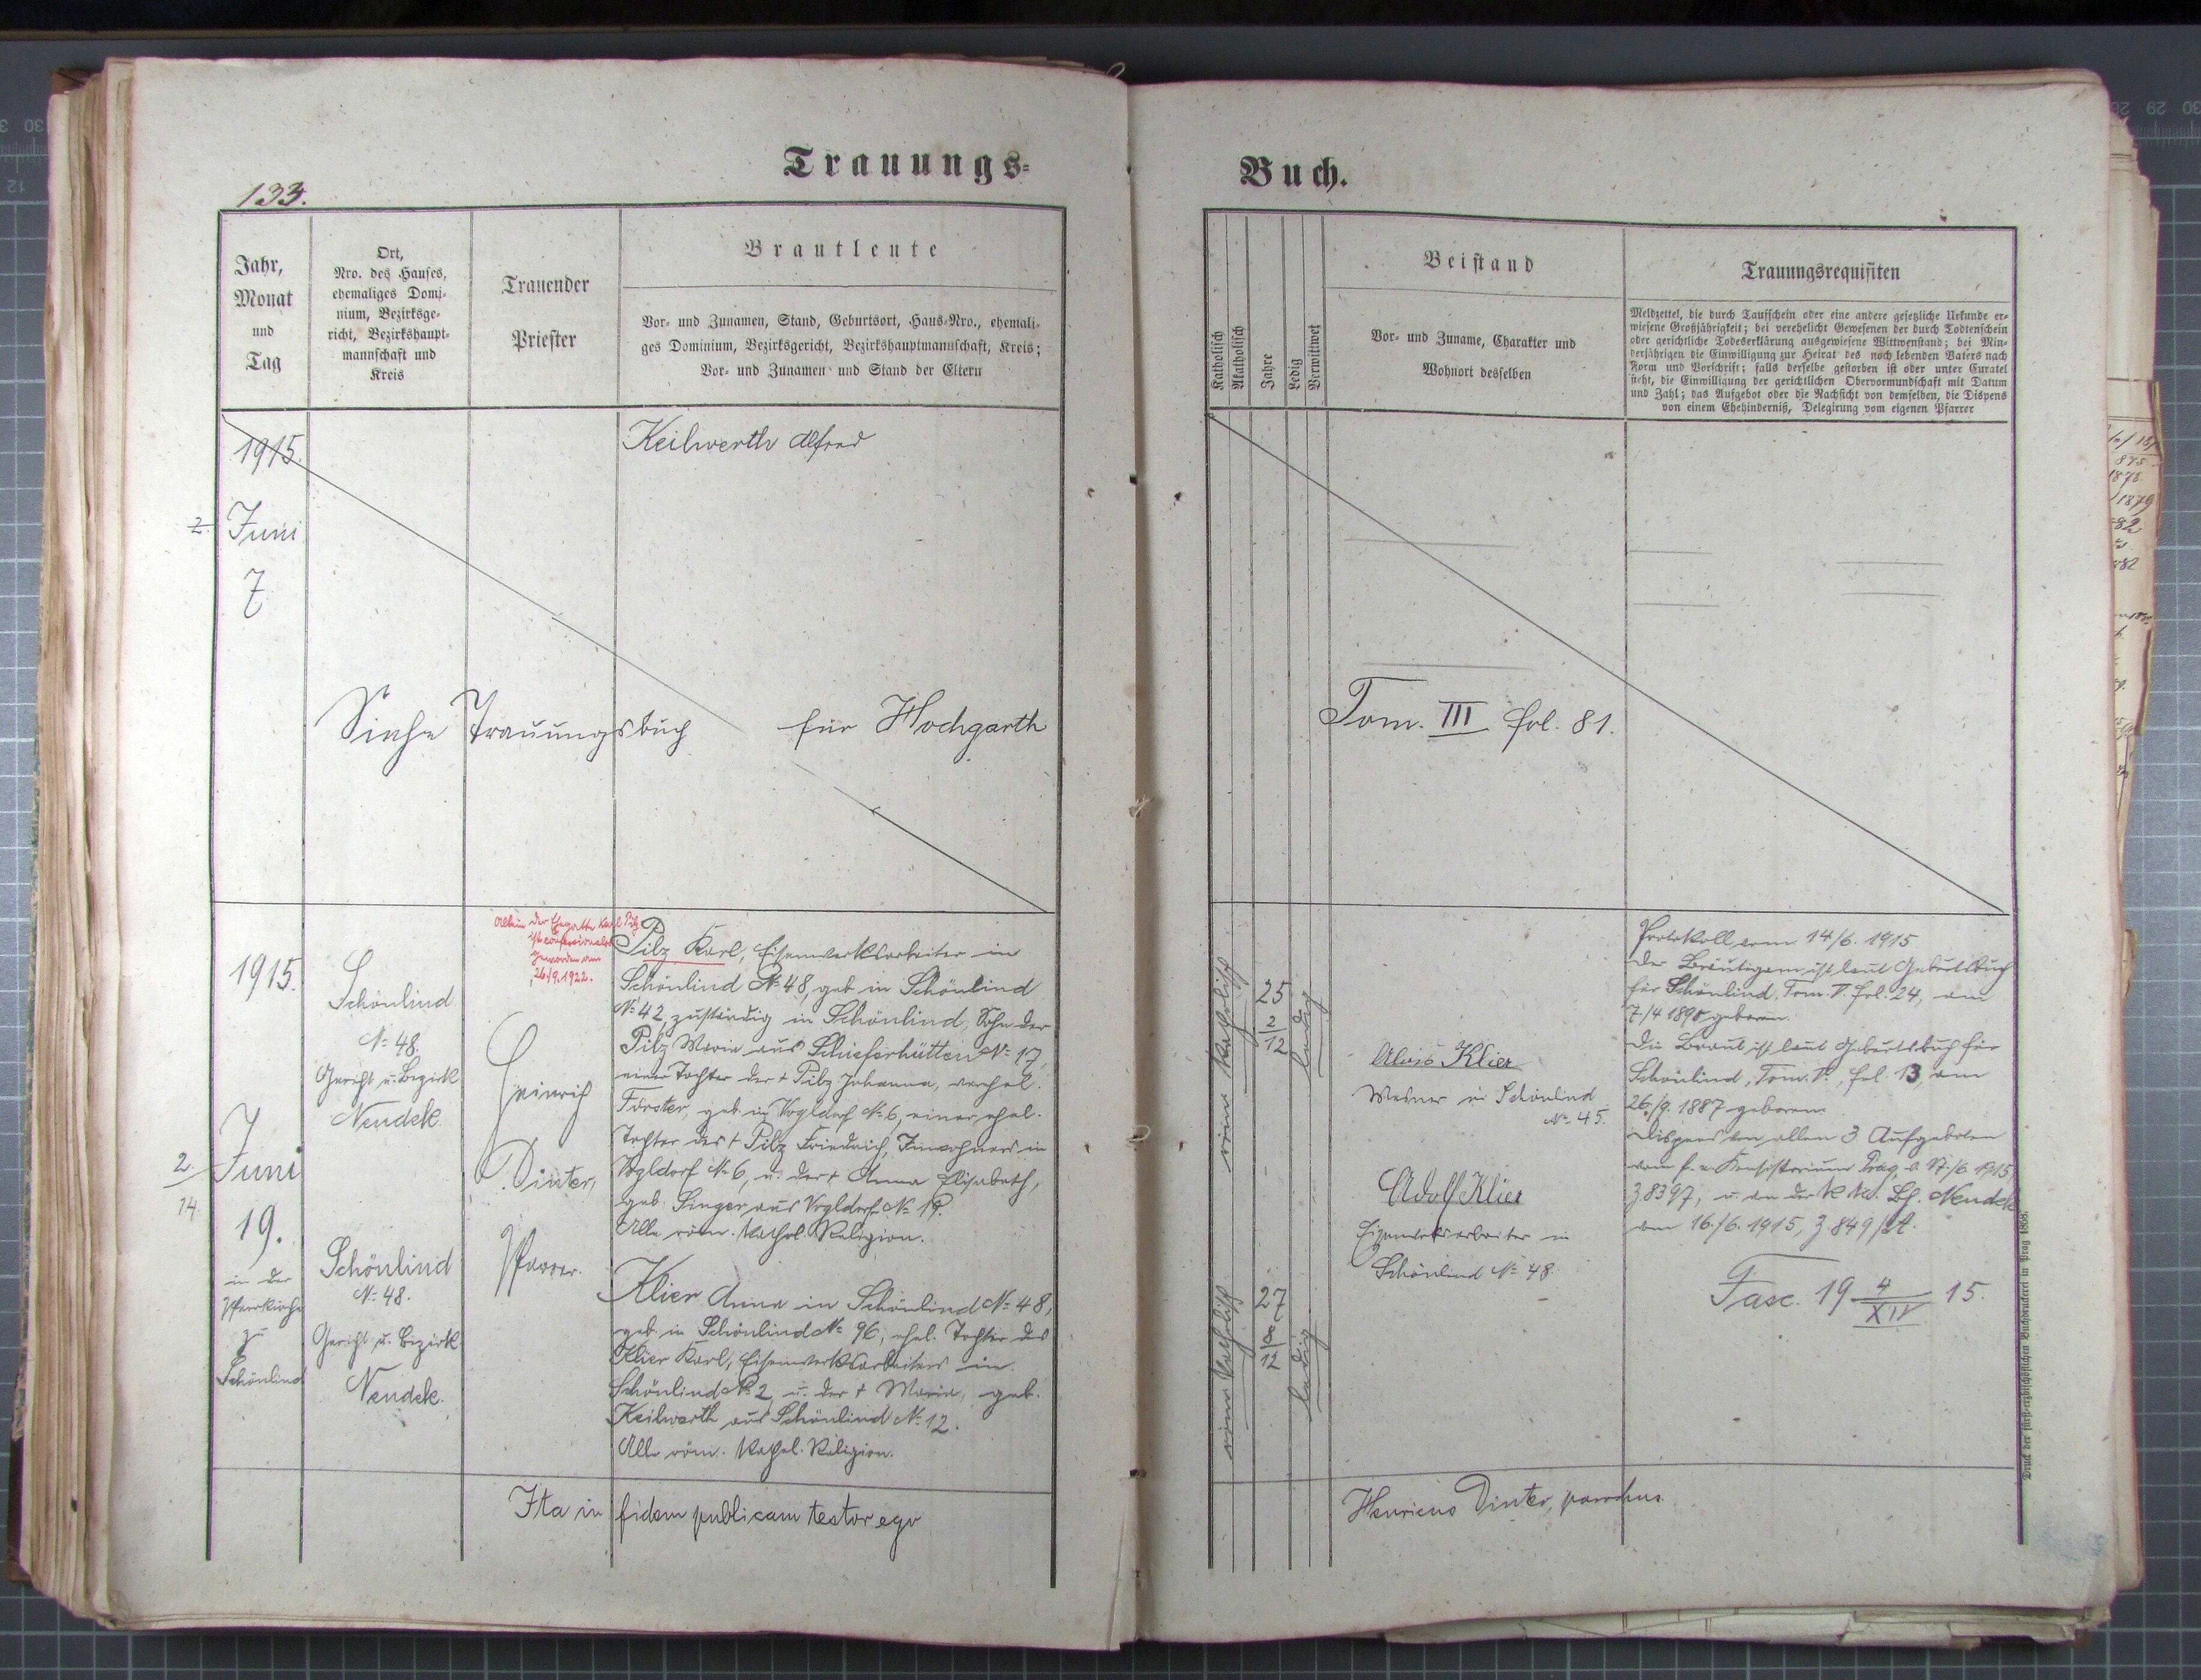 Trauungs-
Buch.
133.
Jahr,
Monat
und
Tag
Ort,
Nro. des Hauses,
ehemaliges Domi-
nium, Bezirksge-
richt, Bezirkshaupt-
mannschaft und
Kreis
Trauender
Priester
Brautleute
Vor- und Zunamen, Stand, Geburtsort, Haus-Nro., ehemali-
ges Dominium, Bezirksgericht, Bezirkshauptmannschaft, Kreis;
Vor- und Zunamen und Stand der Eltern
Katholisch
Akatholisch
Jahre
Ledig
Verwittwet
Beistand
Vor- und Zuname, Charakter und
Wohnort desselben
Trauungsrequisiten
Meldzettel, die durch Taufschein oder eine andere gesetzliche Urkunde er-
wiesene Großjährigkeit; bei verehelicht Gewesenen der durch Todtenschein
oder gerichtliche Todeserklärung ausgewiesene Wittwenstand; bei Min-
derjährigen die Einwilligung zur Heirat des noch lebenden Vaters nach
Form und Vorschrift; falls derselbe gestorben ist oder unter Curatel
steht, die Einwilligung der gerichtlichen Obervormundschaft mit Datum
und Zahl; das Aufgebot oder die Nachsicht von demselben, die Dispens
von einem Ehehinderniß, Delegirung vom eigenen Pfarrer
1915.
2. Juni
7
Keilwerth Alfred
Siehe Trauungsbuch für Hochgarth
Tom. III fol. 81.
1915.
Juni
2.
14.
19.
in der
Pfarrkirche
zu
Schönlind
Schönlind
№ 48.
Gericht u. Bezirk
Neudek
Schönlind
№ 48.
Gericht u. Bezirk
Neudek.
Heinrich
Dinter,
Pfarrer.
Allein der Ehegatte Karl Pilz
ist confessionslos
geworden am
26/9.1922.
Pilz Karl, Eisenwerksarbeiter in
Schönlind № 48, geb. in Schönlind
№ 42, zuständig in Schönlind, Sohn der
Pilz Maria aus Schieferhütten № 17,
einer Tochter der † Pilz Johanna, verehel.
Förster, geb. in Vogldorf № 6, einer ehel.
Tochter des † Pilz Friedrich, in
Vogldorf № 6, u. der † Anna Elisabeth,
geb. Singer aus Vogldorf № 19.
Alle röm. kathol. Religion.
Klier Anna in Schönlind № 48,
geb. in Schönlind № 96, ehel. Tochter des
Klier Karl, Eisenwerksarbeiters in
Schönlind № 2, u. der † Maria, geb.
Keilwerth aus Schönlind № 12.
Alle röm. kathol. Religion.
röm. katholisch
25
2/12
ledig
röm. katholisch
27
8/12
ledig
Alois Klier
Mesner in Schönlind
№ 45.
Adolf Klier
Eisenwerksarbeiter in
Schönlind № 48.
Protokoll vom 14/6. 1915
Der Bräutigam ist laut Geburtsbuch
für Schönlind, Tom. V. fol. 24, am
7/4 1890 geboren.
Die Braut ist laut Geburtsbuch für
Schönlind, Tom. V., fol. 13, am
26./9. 1887 geboren.
Dispens von allen 3 Aufgeboten
vom f. e. Konsistorium Prag, 17./6 1915,
Z 8397, u. von der k. k. Bh. Neudek
vom 16./6. 1915, Z. 849/St.
Fasc. 19 4/XIV 15.
Ita in fidem publicam testor ego
Henricus Dinter, parochus.
Druck der fürst-erzbischöflichen Buchdruckerei in Prag 1868.